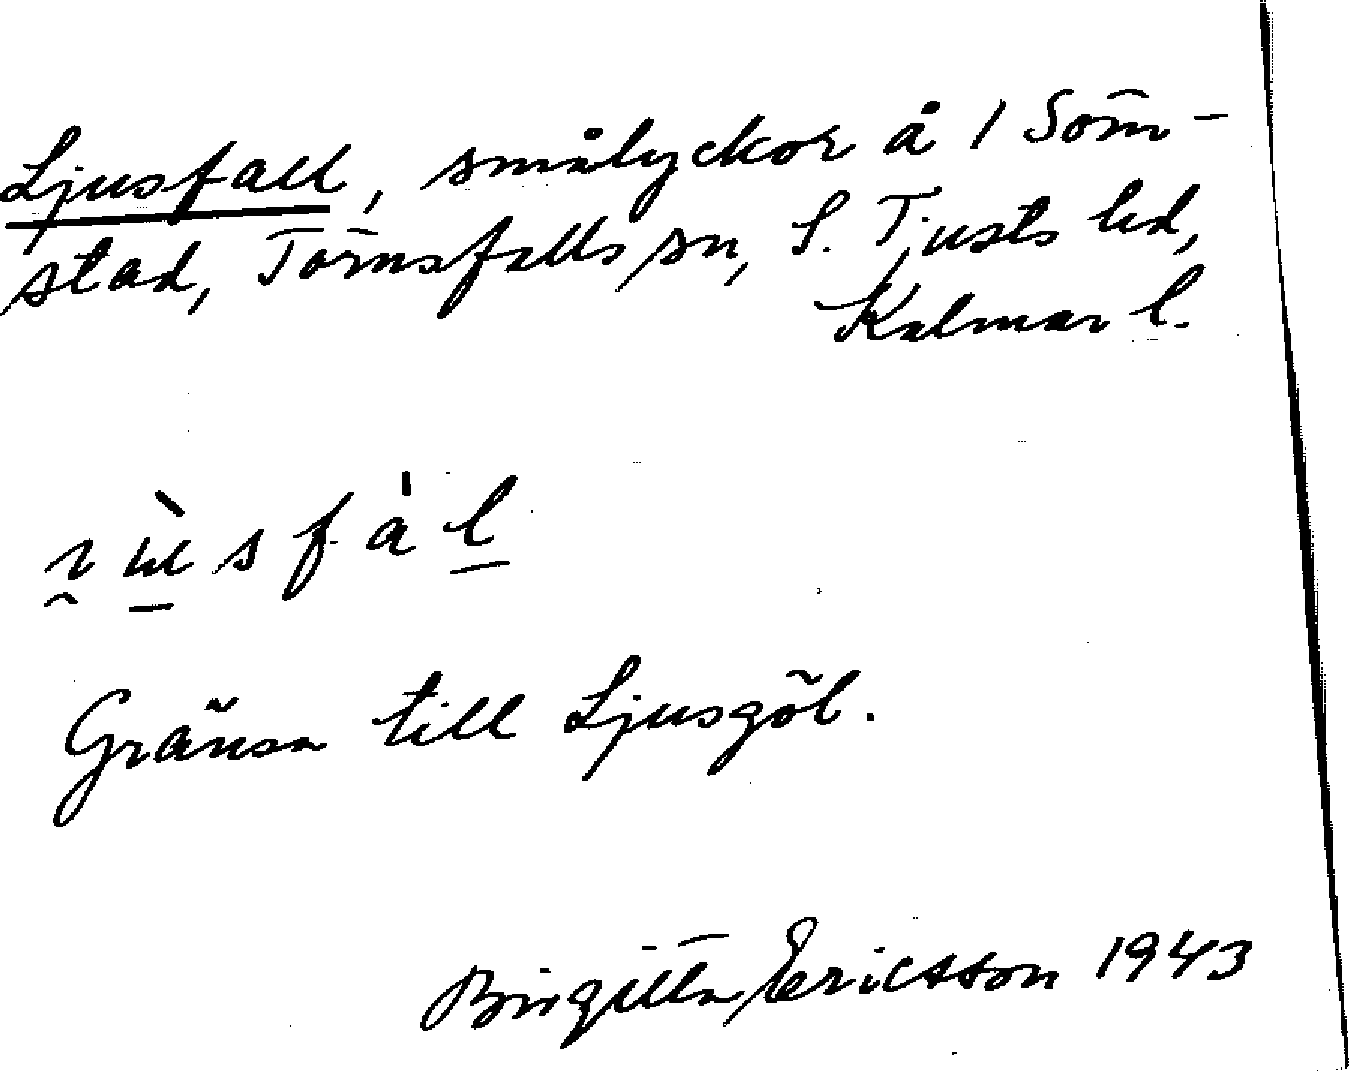 Ljusfall, smålyckor å 1 Söm-
stad, Törnsfalls sn, S. Tjusts hd,
Kalmar l.
Gränsa till Ljusgöl.
Birgitta Ericsson 1943